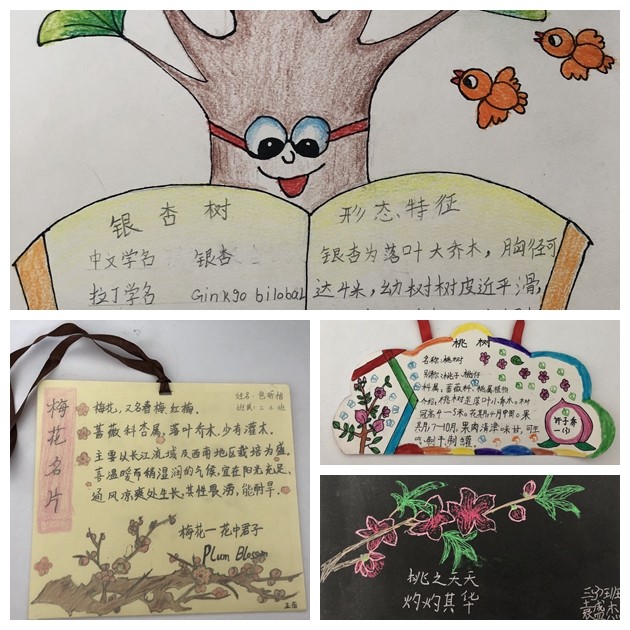 银杏树
中文学名 银杏
拉丁学名 Ginkgo bilobaL
形态特征
银杏为落叶大乔木，胸径可
达4米，幼树树皮近平滑，
梅花名片
姓名：
班属：二.4.班
梅花，又名春梅，红梅。
蔷薇科杏属，落叶乔木，少有灌木。
主要以长江流域及西南地区栽培为盛。
喜温暖而稍湿润的气候，宜在阳光充足，
通风凉爽处生长，其性畏涝，能耐旱。
梅花一花中君子
Plum Blossom
桃树
名称：桃树
别称：桃子、桃仔
科属：蔷薇科、桃属植物
介绍：桃树是落叶小乔木。木对
冠高4一5米。花期3月中旬。果
熟7~10月，果肉清津味甘，可生
吃、制干制罐。
许子睿
桃之夭夭
灼灼其华
三(7)班